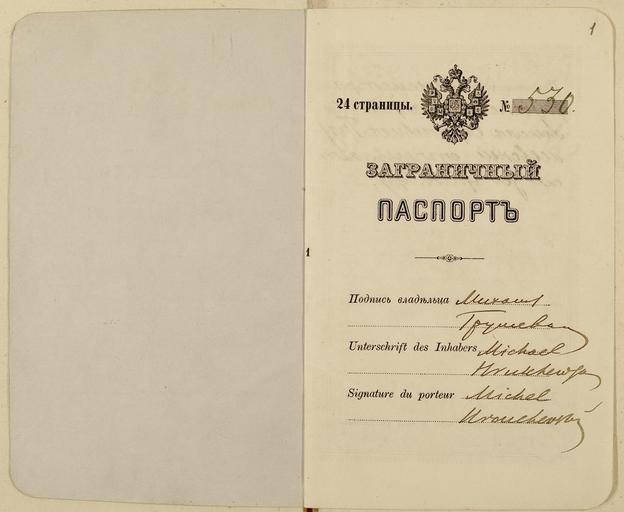 1
24 страницы. № 530.
ЗАГРАНИЧНЫЙ
ПАСПОРТЪ
1
Подпись владѣльца Михаил
Грушевск
Unterschrift des Inhabers Michael
Signature du porteur Michel